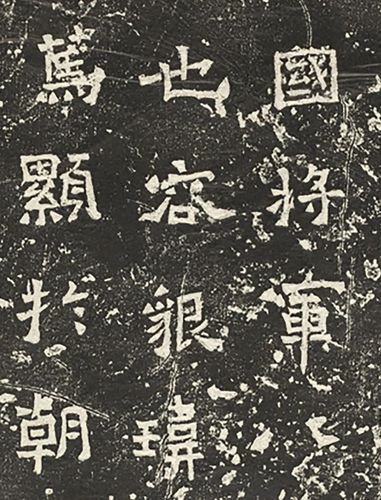 國將軍之
也容貌瑋
篤顯於朝